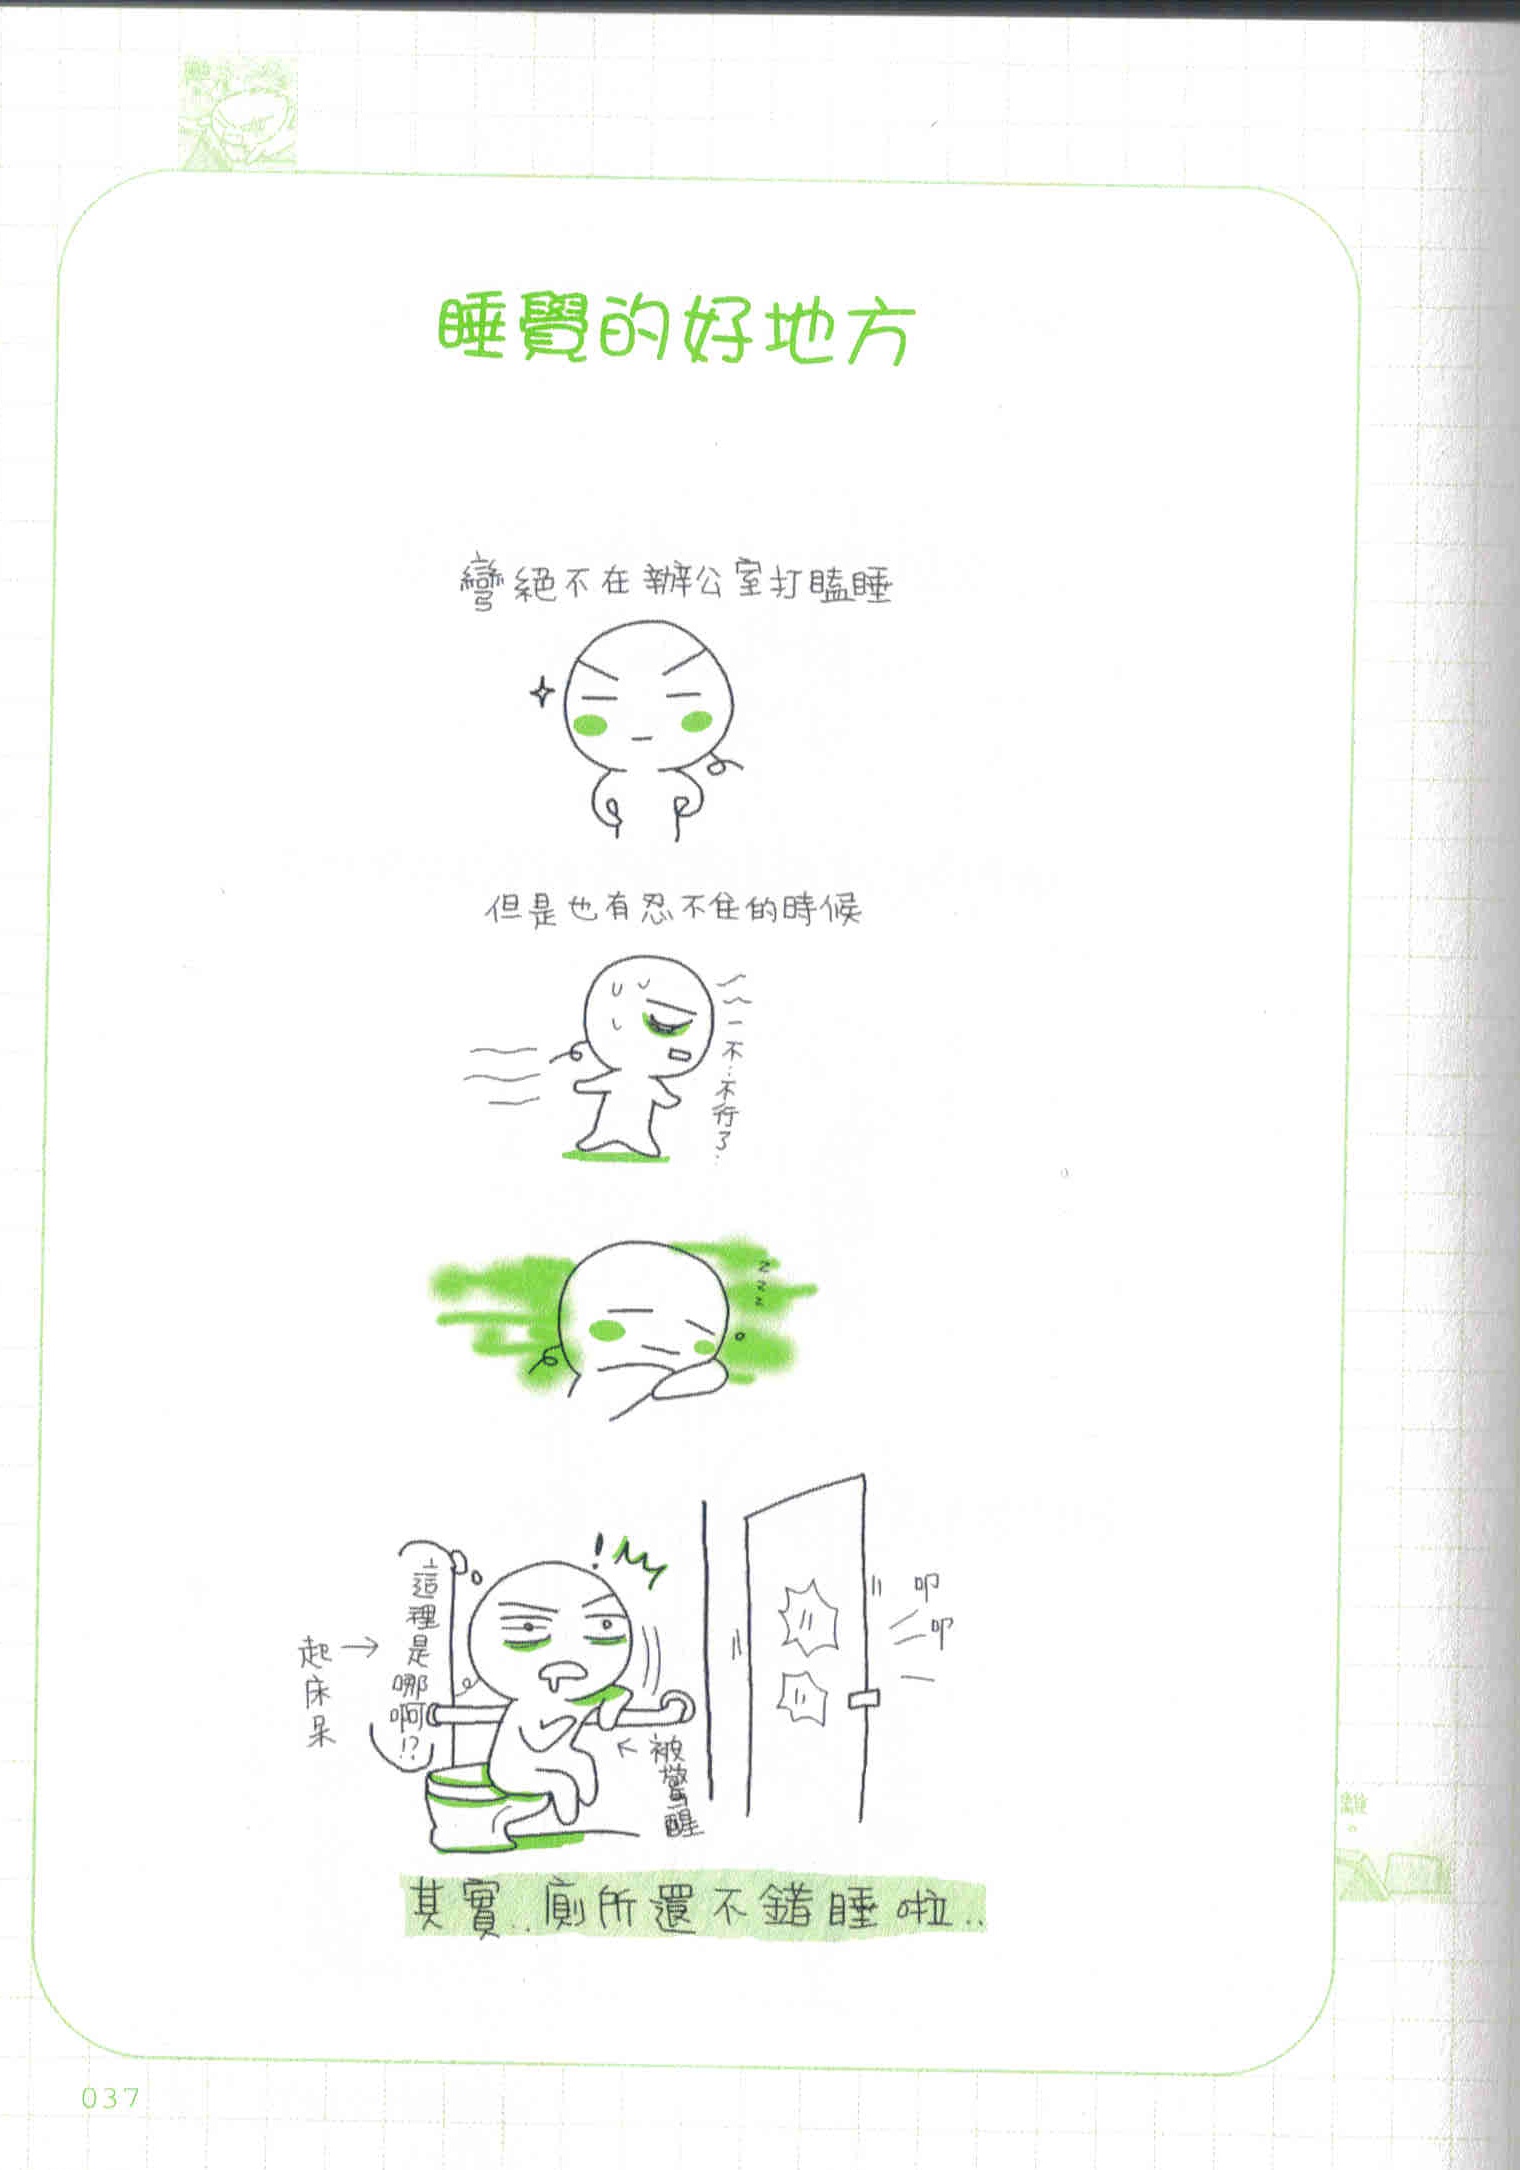 睡覺的好地方
彎絕不在辦公室打瞌睡
但是也有忍不住的時候
不…不行了…
zzz
!
這裡是哪啊!?
起床呆
被驚醒
叩
叩
其實..廁所還不錯睡啦..
037